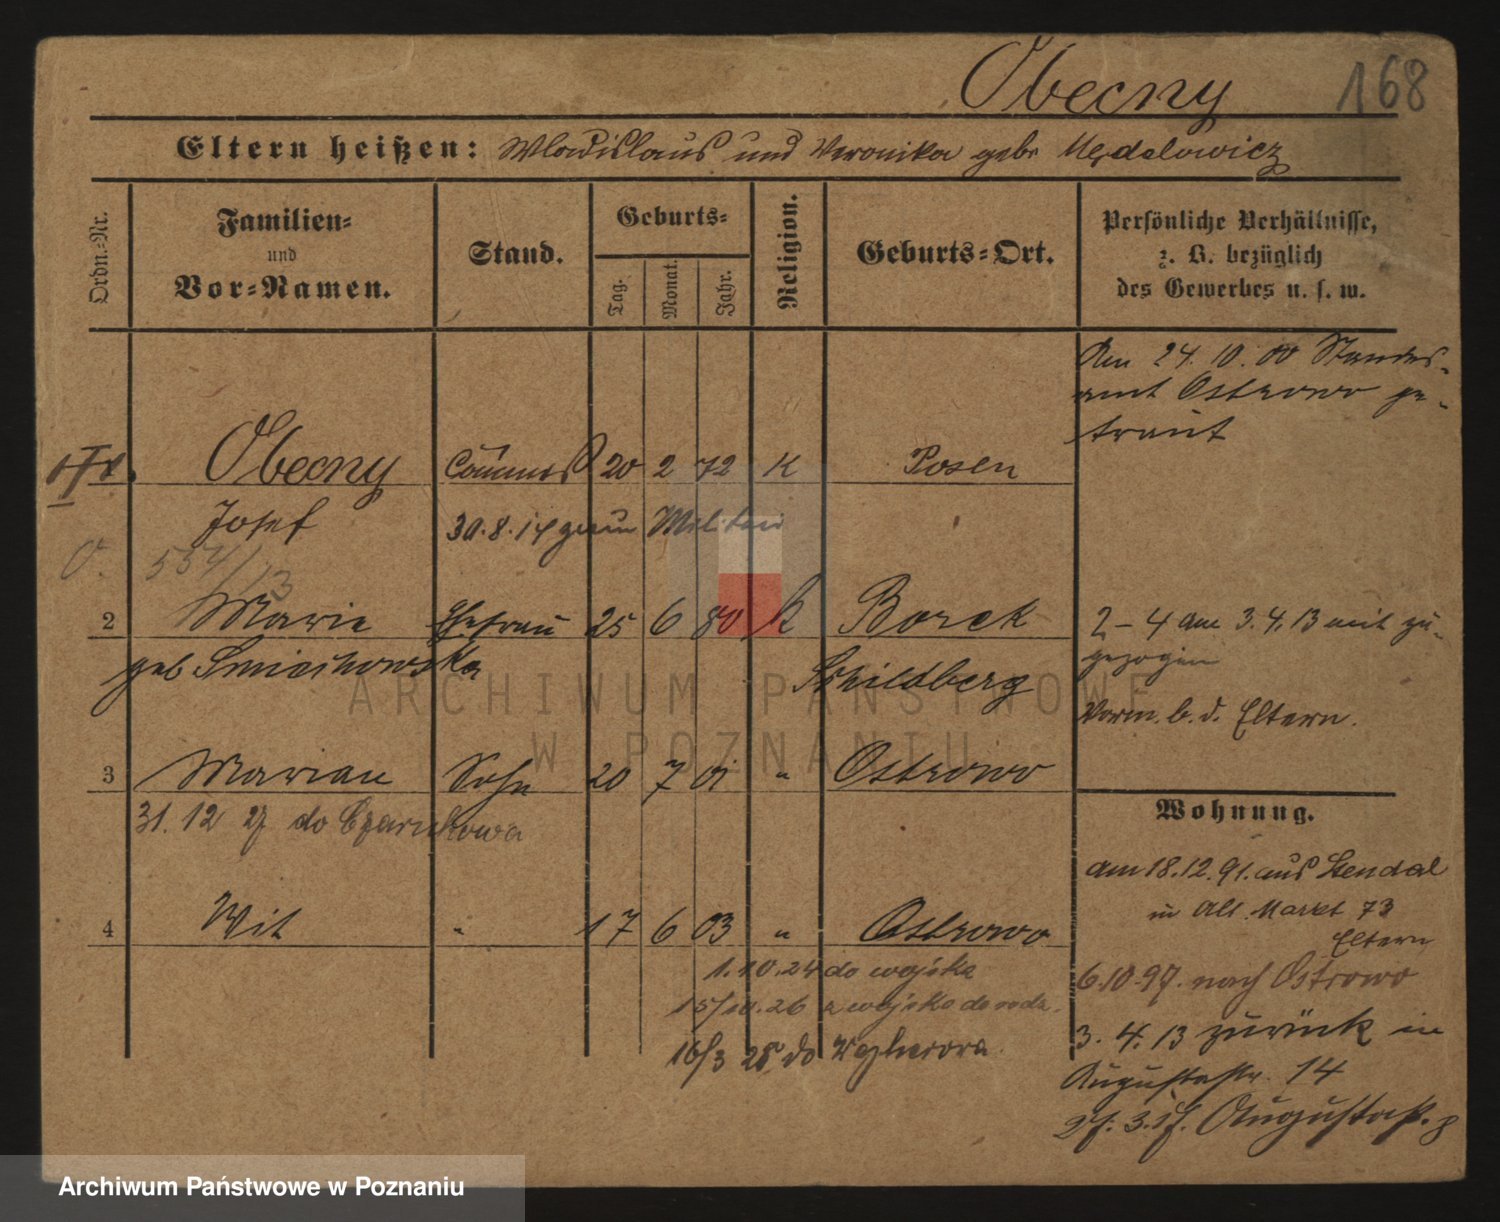 Obecny 168
Eltern heißen: Wladislaus und Veronika geb Mędelowicz
Ordn.-Nr.
Familien-
und
Vor-Namen.
Stand.
Geburts-
Tag.
Monat.
Jahr.
Religion.
Geburts-Ort.
Persönliche Verhältnisse,
z. B. bezüglich
des Gewerbes u. s. w.
Am 24. 10. 00 Standes-
amt Ostrowo ge-
traut
Obecny 20 2 72 K Posen
Josef 30.8.14 zum Militär
554/13
2 Marie Ehefrau 25 6 80 k Borek
geb Smiechowska Schildberg
2-4 am 3.4.13 mit zu-
gezogen
Vorm. b. d. Eltern.
3 Marian Sohn 20 7 01 " Ostrowo
31. 12 27 do Czarnkowa
4 Wit " 17 6 03 " Ostrowo
1.10.24 do wojska
15/10.26 z wojska do rodz.
16/3 28 do Wejherowa
Wohnung.
am 18.12.91. aus Stendal
in Alt. Markt 73
Eltern
6.10.97. nach Ostrowo
3. 4. 13 zurück in
Augustastr. 14
Augustastr.
ARCHIWUM PAŃSTWOWE
W POZNANIU
Archiwum Państwowe w Poznaniu